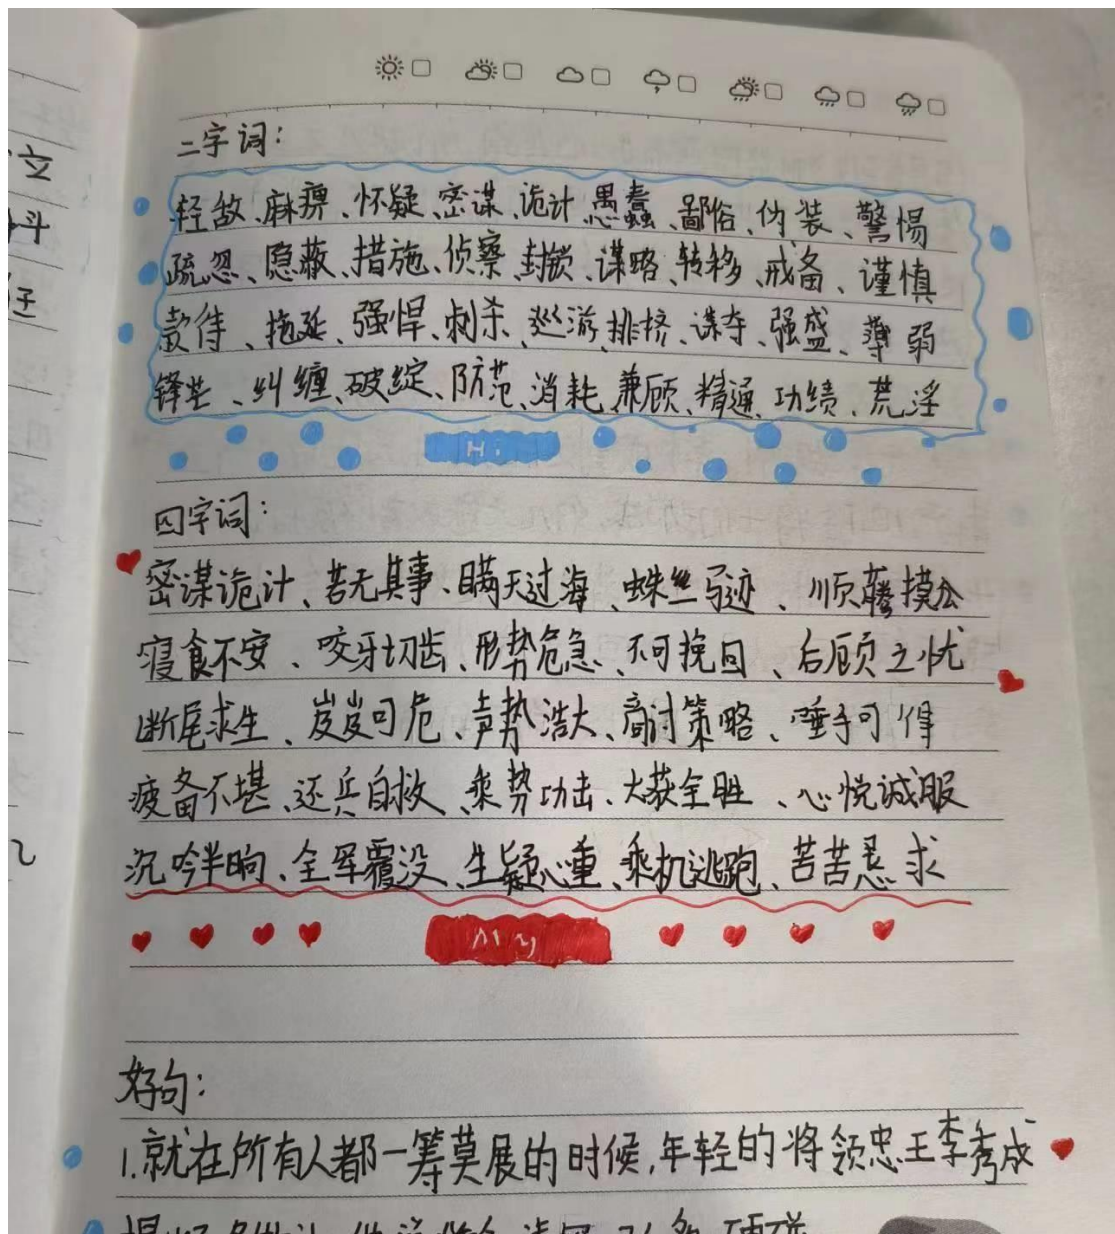 立
斗
二字词：
轻敌、麻痹、怀疑、密谋、诡计、愚蠢、鄙俗、伪装、警惕
疏忽、隐蔽、措施、侦察、封锁、谋略、转移、戒备、谨慎
款待、拖延、强悍、刺杀、巡游、排挤、谋夺、强盛、薄弱
锋芒、纠缠、破绽、防范、消耗、兼顾、精通、功绩、荒淫
Hi
四字词：
密谋诡计、若无其事、瞒天过海、蛛丝马迹、顺藤摸瓜
寝食不安、咬牙切齿、形势危急、不可挽回、后顾之忧
断尾求生、岌岌可危、声势浩大、商讨策略、唾手可得
疲备不堪、还兵自救、乘势功击、大获全胜、心悦诚服
沉吟半晌、全军覆没、生疑心重、乘机逃跑、苦苦恳求
My
好句：
1.就在所有人都一筹莫展的时候,年轻的将领忠王李秀成